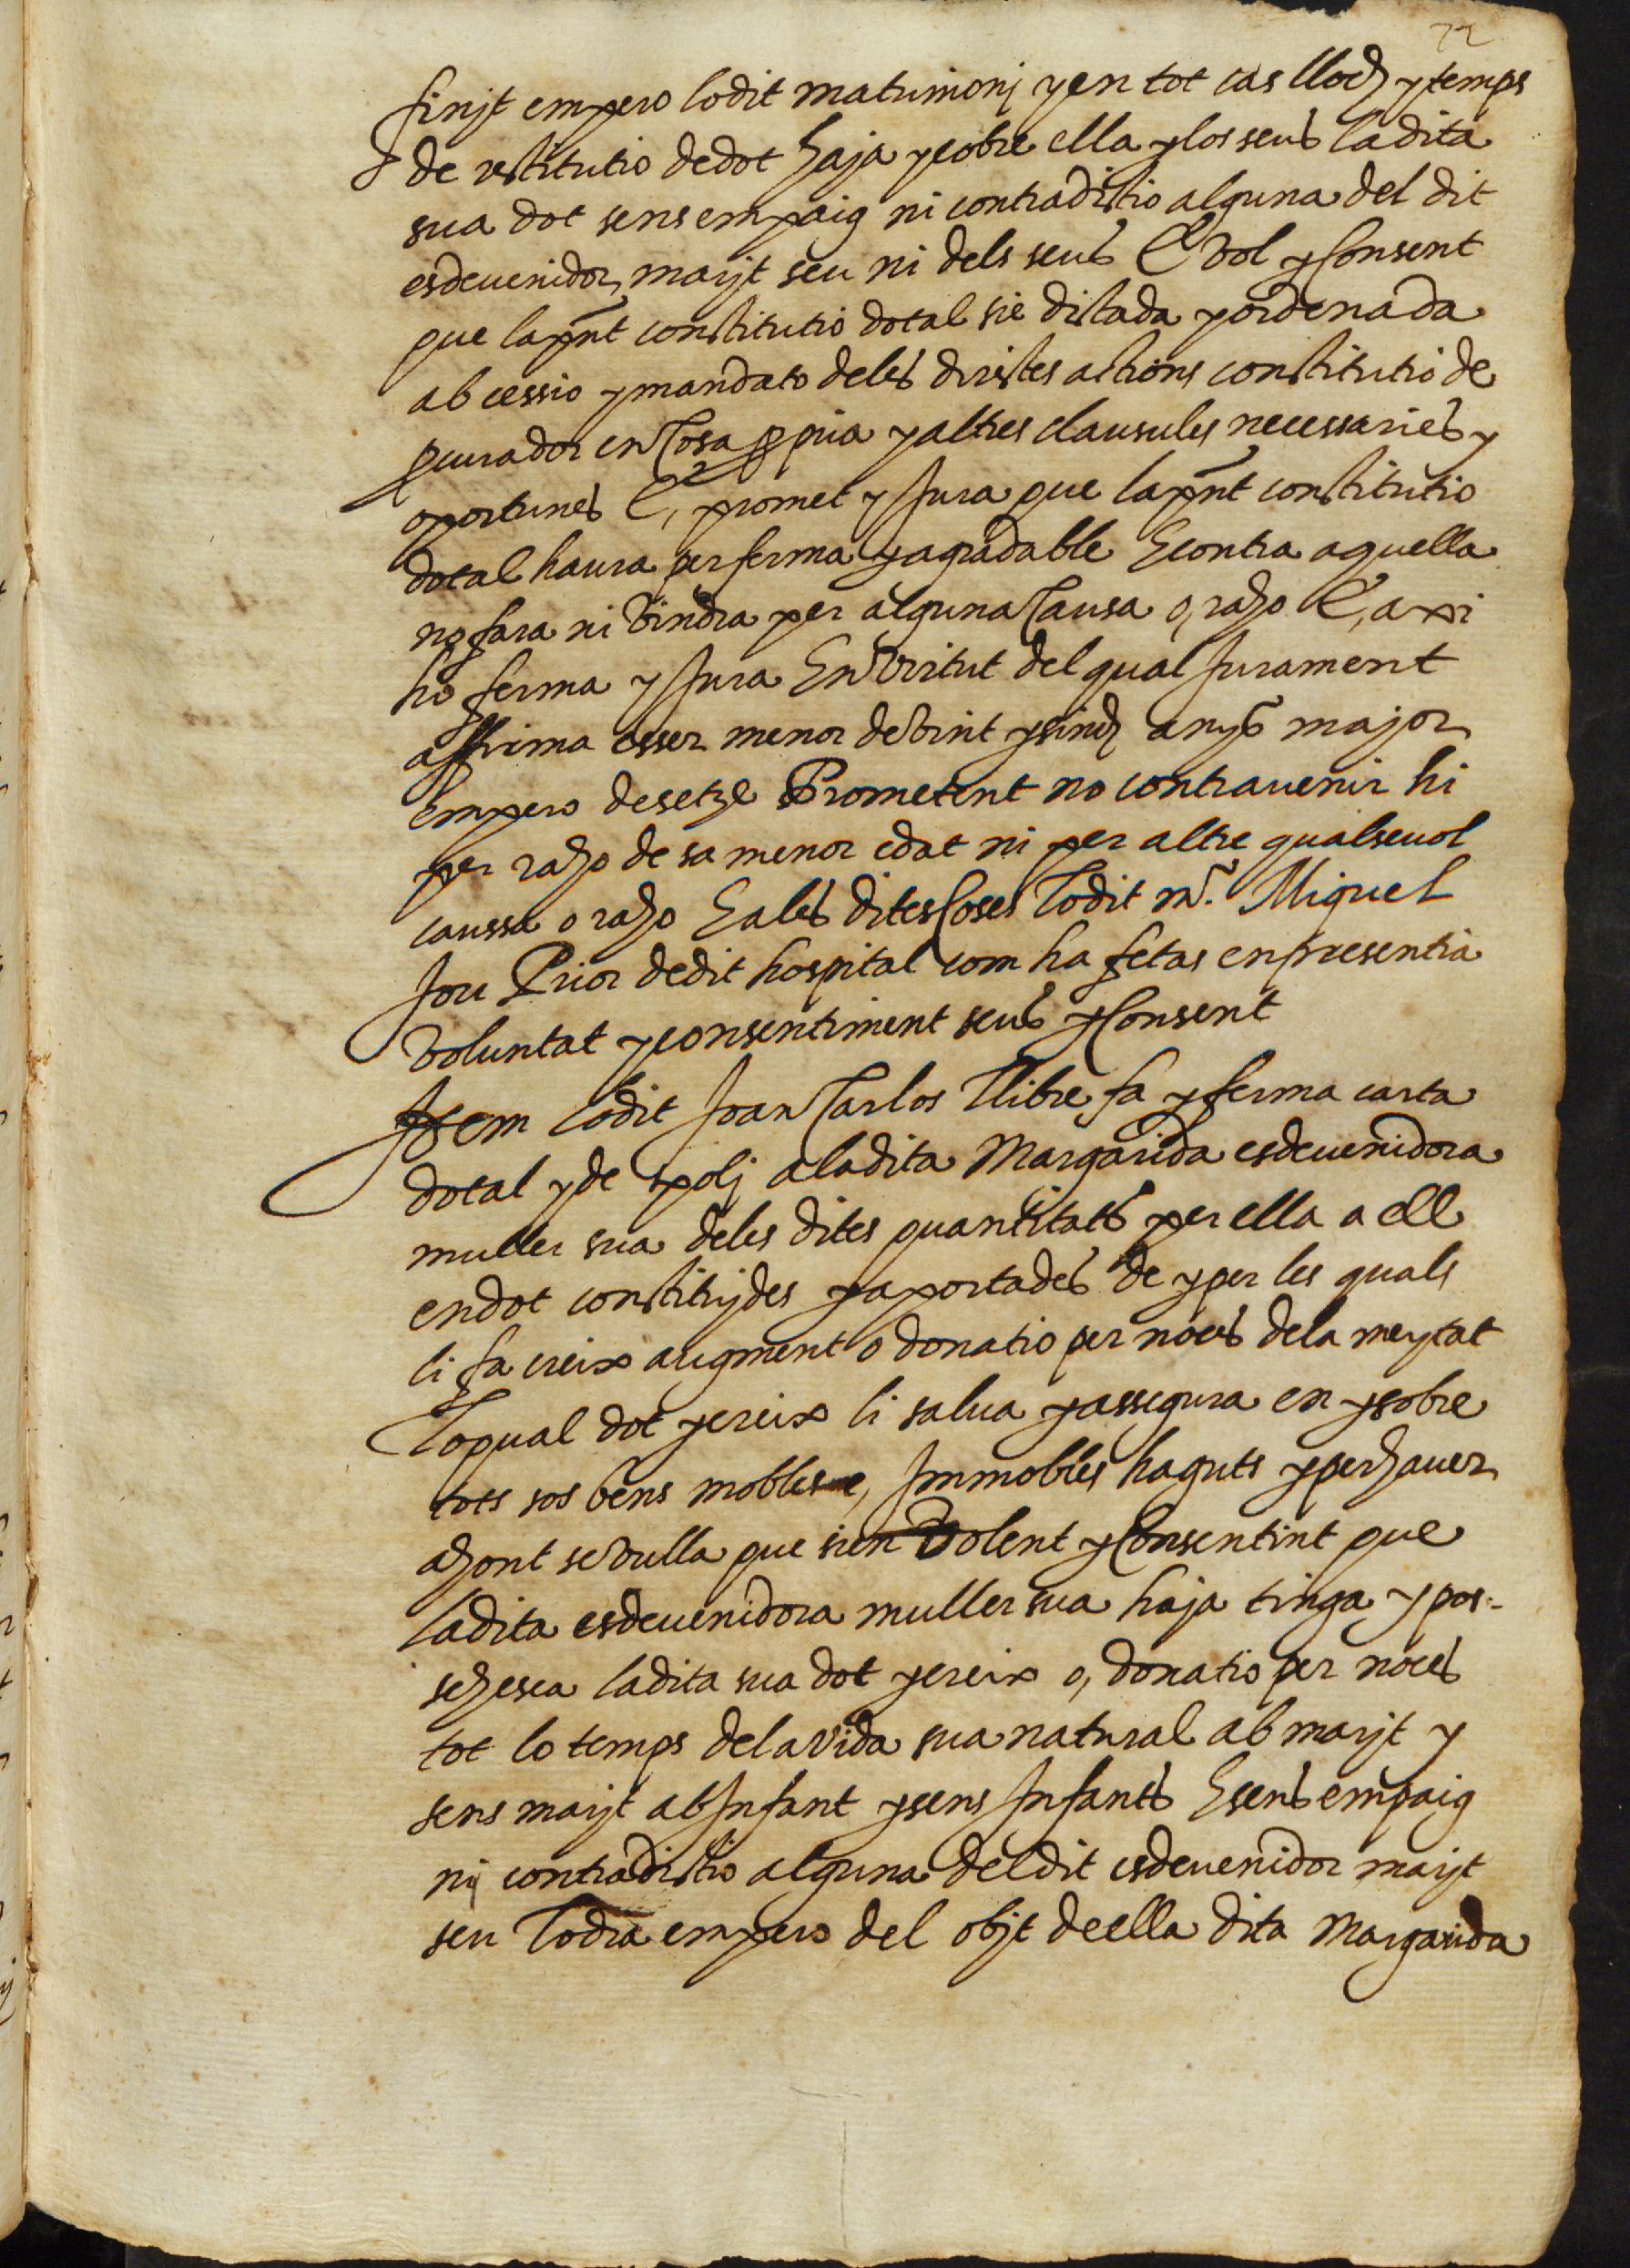 72
finjt empero lo dit matrimonj y en tot cas lloch y temps
de restitutio de dot haja y cobre ella y los seus la dita
sua dot sens empaig ni contradictio alguna del dit
esdeuenidor marjt seu ni dels seus E vol y consent
que la pnt constitutio dotal sie dictada y ordenada
ab cessio y mandato deles dirictes actions constitutio de
pcurador en cosa ppia y altres clausules necessaries y
oportunes E, promet y jura que la pnt constitutio
dotal haura per ferma y agradable E contra aquella
no fara ni vindra per alguna causa o, raho E, axi
ho ferma y jura En virtut del qual jurament
affirma esser menor de vint y sinch anys major
empero de setze Prometent no contrauenir hi
per raho de sa menor edat ni per altre qualseuol
caussa o raho E ales dites coses lo dit mr. Miquel
Jou Prior de dit hospital com ha fetas en presentia
voluntat y consentiment seus y consent
Item lo dit Joan Carlos Llibre fa y ferma carta
dotal y de spolj a la dita Margarida esdeuenidora
muller sua deles dites quantitats per ella a ell
en dot constituydes y aportades de y per les quals
li fa creix augment o donatio per noces dela meytat
Lo qual dot y creix li salua y assegura en y sobre
tots sos bens mobles e, Immobles haguts y per hauer
ahont se vulla que sien Volent y consentint que
la dita esdeuenidora muller sua haja tinga y pos-
sehesca la dita sua dot y creix o, donatio per noces
tot lo temps de la vida sua natural ab marjt y
sens marjt ab Infant y sens Infants E sens empaig
nj contradictio alguna del dit esdeuenidor marjt
seu empero del objt de ella dita Margarida